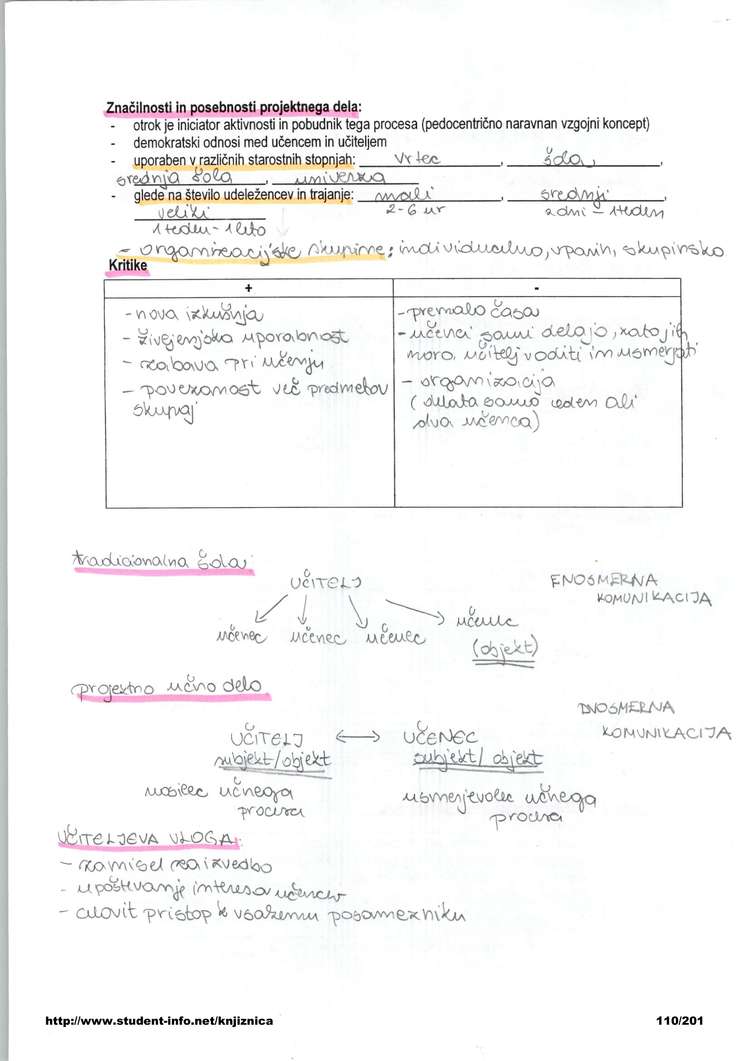 Značilnosti in posebnosti projektnega dela:
- otrok je iniciator aktivnosti in pobudnik tega procesa (pedocentrično naravnan vzgojni koncept)
- demokratski odnosi med učencem in učiteljem
- uporaben v različnih starostnih stopnjah: vrtec, šola,
srednja šola, univerza
- glede na število udeležencev in trajanje: mali, srednji
veliki 2-6 ur 2 dni - 1 teden
1 teden - 1 leto
- organizacijske skupine: individualno, v parih, skupinsko
Kritike
+ -
- nova izkušnja
- življenjska uporabnost
- zabava pri učenju
- povezanost več predmetov
skupaj
- premalo časa
- učenci sami delajo, zato jih
mora učitelj voditi in usmerjati
- organizacija
(delata samo eden ali
dva učenca)
tradicionalna šola:
UČITELJ
ENOSMERNA
KOMUNIKACIJA
učenec učenec učenec učenec
(objekt)
projektno učno delo
DVOSMERNA
KOMUNIKACIJA
UČITELJ ↔ UČENEC
subjekt/objekt subjekt/objekt
nosilec učnega
procesa
usmerjevalec učnega
procesa
UČITELJEVA VLOGA:
- zamisel za izvedbo
- upoštevanje interesa učencev
- celovit pristop k vsakemu posamezniku
http://www.student-info.net/knjiznica 110/201